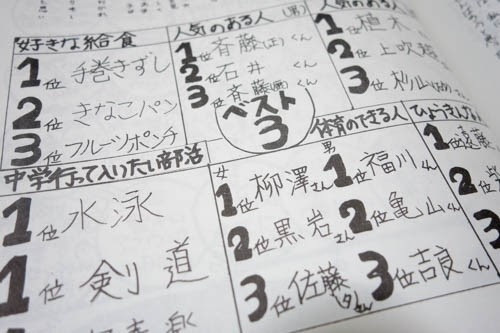 好きな給食
1位 手巻きずし
2位 きなこパン
3位 フルーツポンチ
人気のある人(男)
1位 斉藤(正)くん
2位 石井くん
3位 斉藤
くん
人気のある人
1位 植木
2位 上吹越
3位 杉山
ベスト3
中学行って入りたい部活
1位 水泳
1位 剣道
体育のできる人
女
1位 柳澤さん
2位 黒岩さん
3位 佐藤
さん
男
1位 福川くん
2位 亀山くん
3位 吉良くん
ひょうきん
1位 遠藤
2位
3位